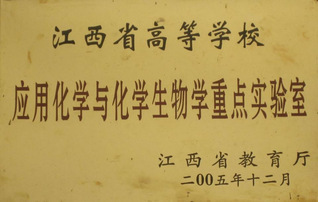 江西省高等学校
应用化学与化学生物学重点实验室
江西省教育厅
二00五年十二月